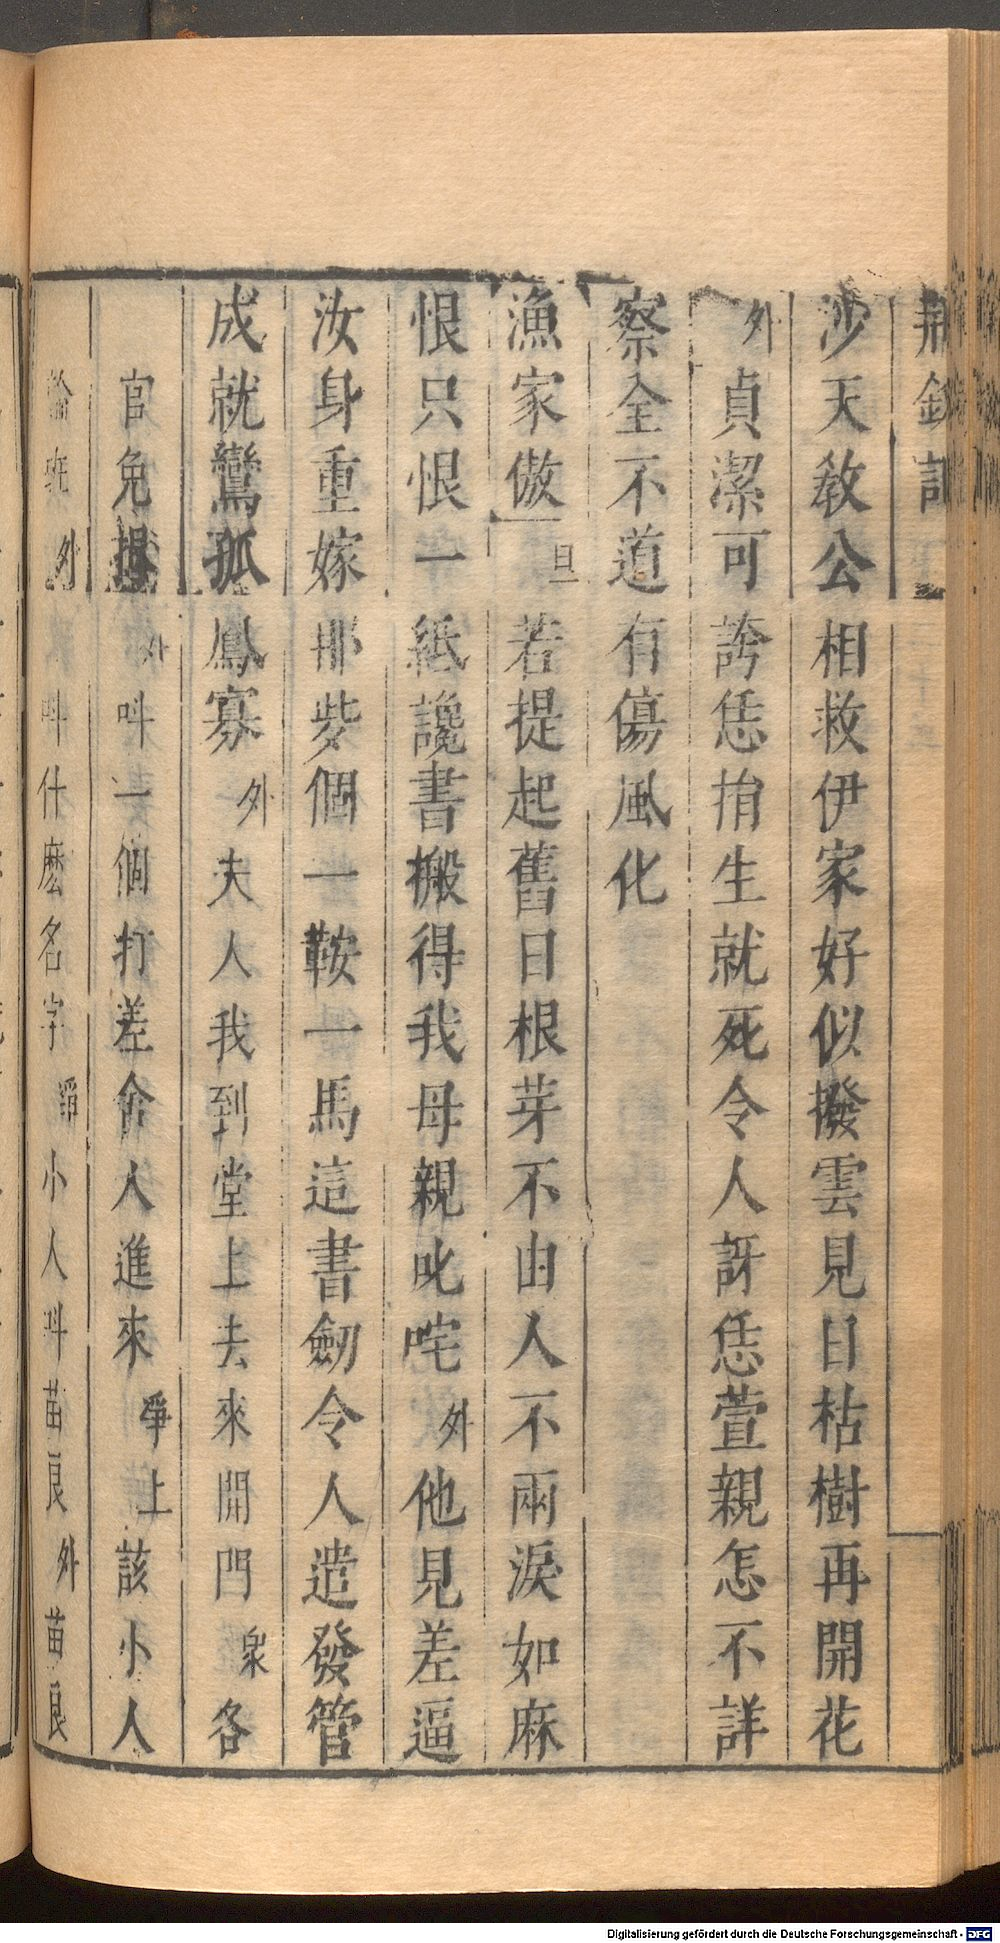 荆釵記
沙天教公相救伊家好似撥雲見日枯樹再開花
外貞潔可誇恁捐生就死令人訝恁萱親怎不詳
察全不道有傷風化
漁家傲旦若提起舊日根芽不由人不兩淚如麻
恨只恨一紙讒書搬得我母親叱咤外他見差逼
汝身重嫁那些個一鞍一馬這書劒令人遣發管
成就鸞孤鳳寡外夫人我到堂上去來開門衆各
官免外呌一個打差舍人進來爭上該小人
外呌什麽名字小人呌苗良外苗良
Digitalisierung gefördert durch die Deutsche Forschungsgemeinschaft - DFG